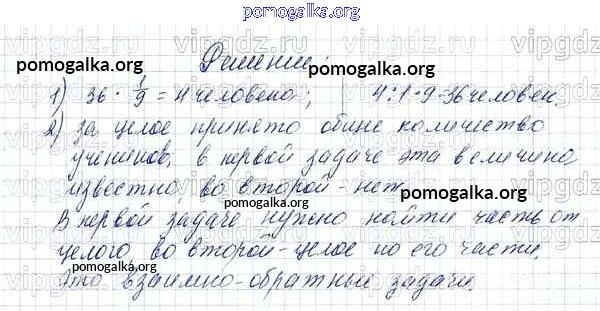 pomogalka.org
Решение.
pomogalka.org
pomogalka.org
1) 36 · 1/9 = 4 человека; 4:1·9=36 человек.
2) за целое принято общее количество
учеников, в первой задаче эта величина
известно, во второй - нет.
pomogalka.org
В первой задаче нужно найти часть от
целого, во второй - целое по его части.
pomogalka.org
Это взаимно-обратные задачи.